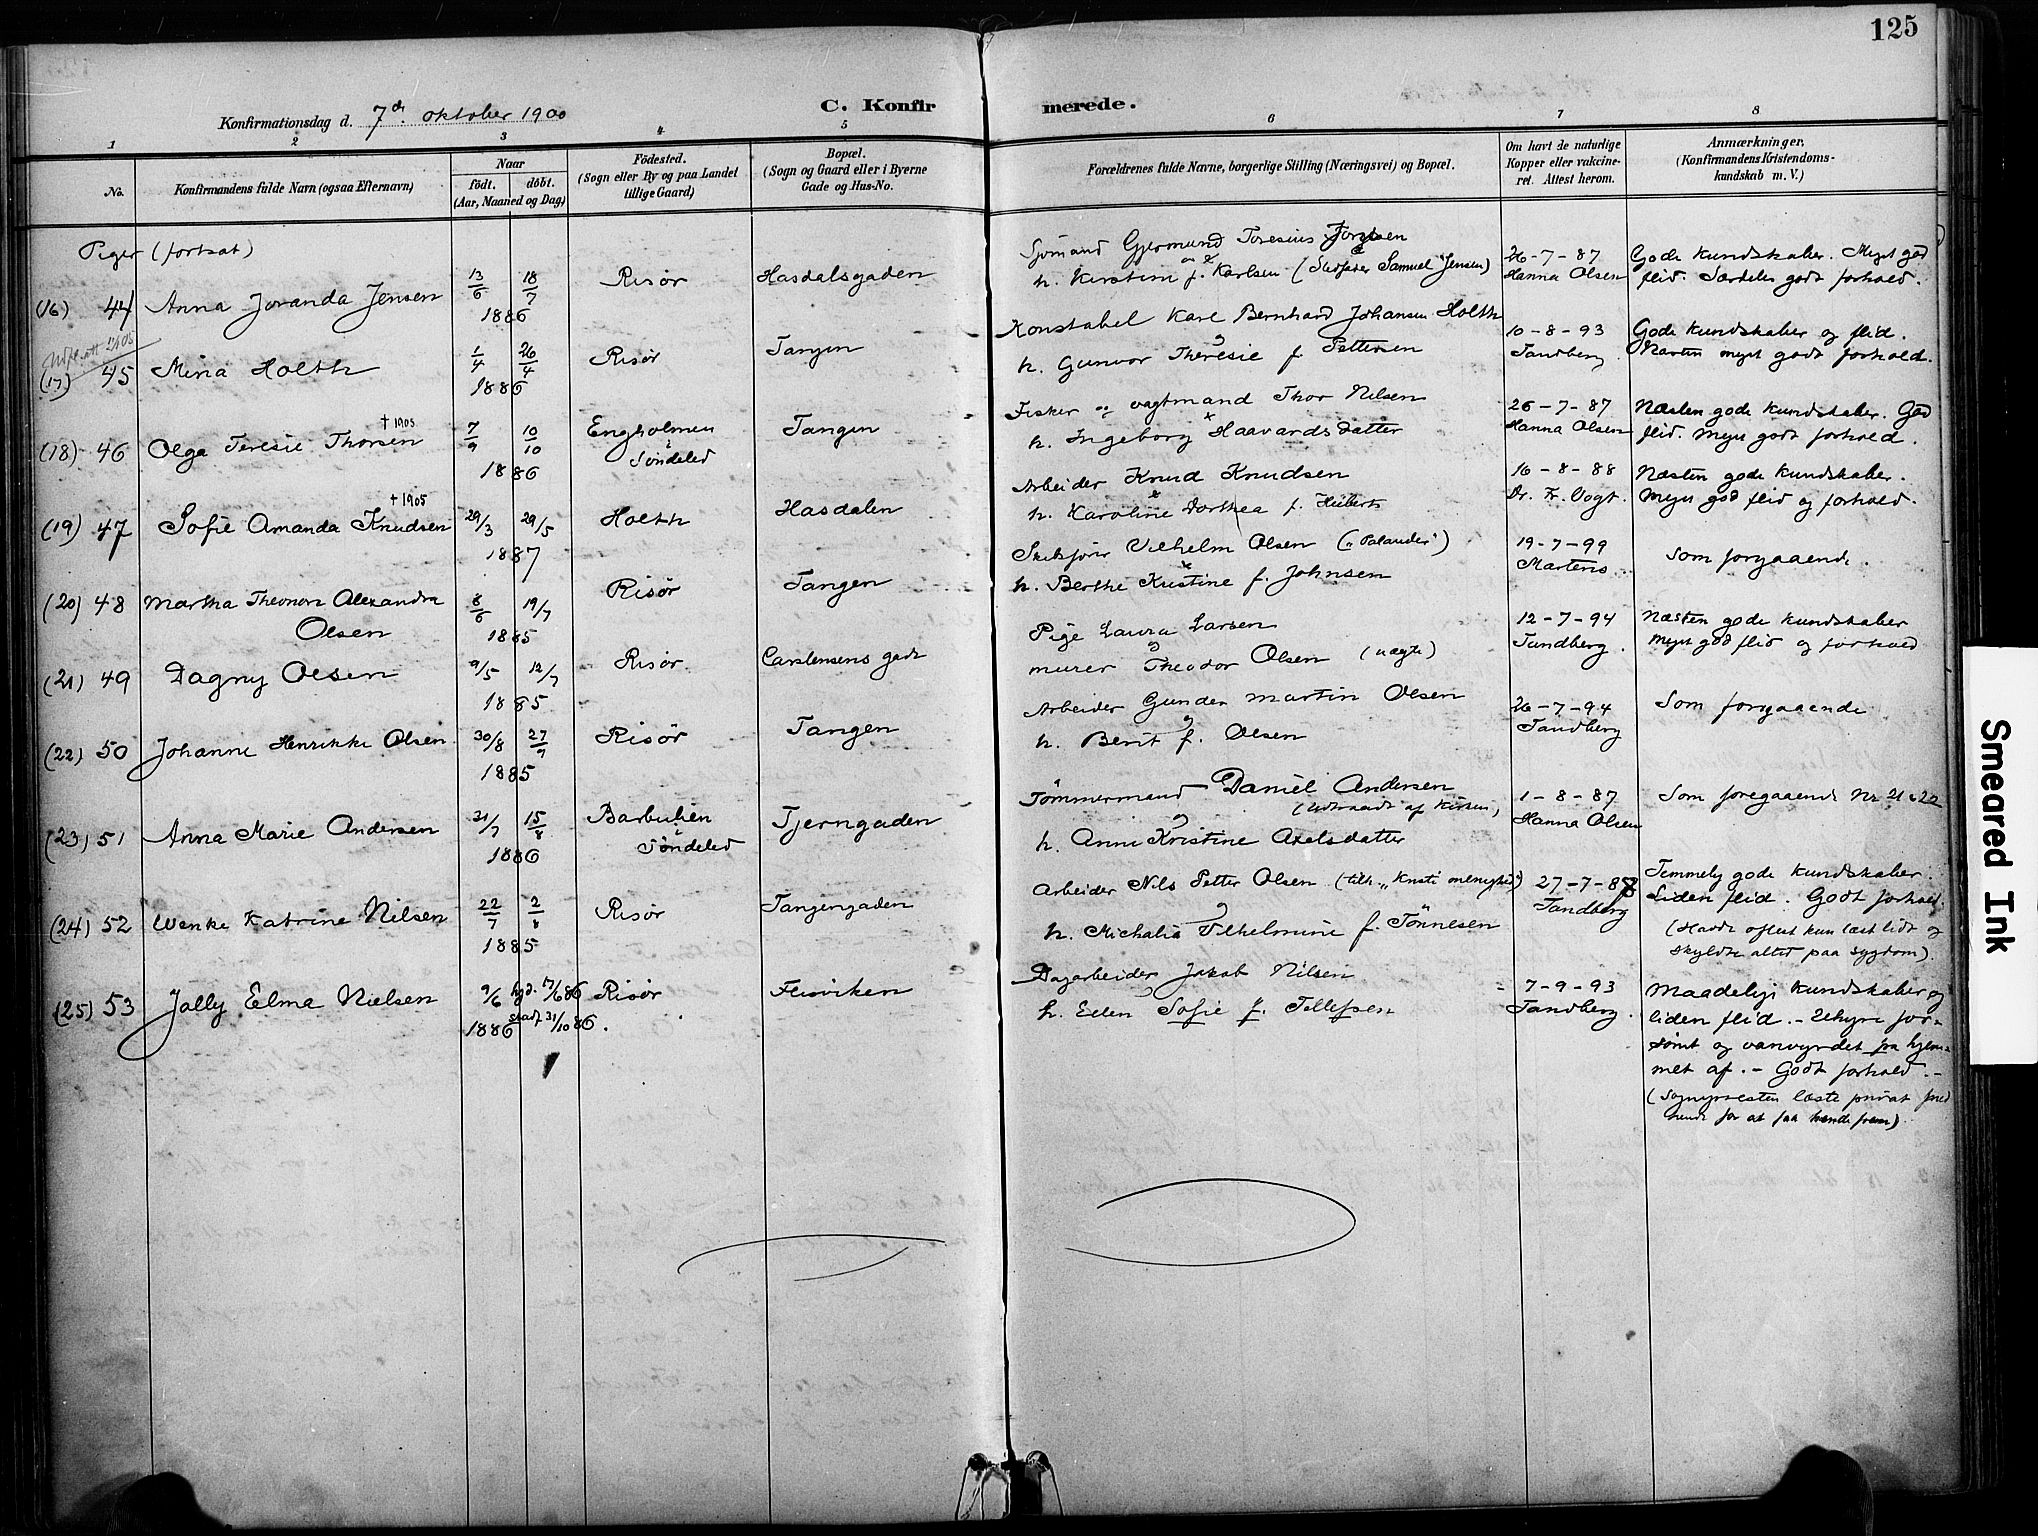 125
Konfirmationsdag d. 7de oktober 1900
C. Konfirmerede.
1 2 3 4 5 6 7 8
No.
Konfirmandens fulde Navn (ogsaa Efternavn)
Naar
födt. döbt.
(Aar, Maaned og Dag)
Födested.
(Sogn eller By og paa Landet
tillige Gaard)
Bopæl.
(Sogn og Gaard eller i Byerne
Gade og Hus-No.
Forældrenes fulde Navne, borgerlige Stilling (Næringsvei) og Bopæl.
Om havt de naturlige
Kopper eller vakcine-
ret. Attest herom.
Anmærkninger,
(Konfirmandens Kristendoms-
kundskab m. V.)
Piger (fortsat)
(16) 44 Anna Joranda Jensen
13/6 18/7
1886
Risør
Hasdalsgaden
Sjömand Gjermund Toresius
h. Kirstine f. Karlsen (Stedfader Samuel Jensen)
26-7-87
Hanna Olsen
Gode kundskaber. Meget god
flid. Særdeles godt forhold.
(17) 45 Mina Holth
1/4 26/4
1886
Risør
Tangen
Konstabel Karl Bernhard Johansen Holth
h. Gunvor Theresie f. Pettersen
10-8-93
Tandberg
Gode kundskaber og flid.
Næsten meget godt forhold.
(18) 46 Olga Teresie Thorsen
† 1905
7/9 10/10
1886
Engholmen
i Söndeled
Tangen
Fisker og vagtmand Thor Nilsen
h. Ingeborg Haavardsdatter
26-7-87
Hanna Olsen
Næsten gode kundskaber. God
flid. Meget godt forhold.
(19) 47 Sofie Amanda Knudsen
† 1905
29/3 29/5
1887
Holth
Hasdalen
Arbeider Knud Knudsen
h. Karoline Dorthea f.
16-8-88
Dr. Fr. Vogt.
Næsten gode kundskaber.
Meget god flid og forhold.
(20) 48 Martha Theonora Alexandra
Olsen
8/6 19/7
1885
Risør
Tangen
Vilhelm Olsen ("Palander")
h. Berthe Kristine f. Johnsen
19-7-99
Martens
Som forgaaende.
(21) 49 Dagny Olsen
9/5 12/7
1885
Risør
Carstensens gade
Pige Laura Larsen
og
murer Theodor Olsen (uægte)
12-7-94
Tandberg.
Næsten gode kundskaber
Meget god flid og forhold
(22) 50 Johanne Henrikke Olsen
30/8 27/9
1885
Risør
Tangen
Arbeider Gunder Martin Olsen
og
h. Berit f. Olsen
26-7-94
Tandberg
Som forgaaende
(23) 51 Anna Marie Andersen
21/7 15/8
1886
Barbulien
i Söndeled
Tjerngaden
Tömmermand Daniel Andersen
(udtraadt af kirken)
og
h. Anne Kristine Axelsdatter
1-8-87
Hanna Olsen
Som foregaaende Nr 21 & 22
(24) 52 Wenke Katrine Nilsen
22/7 2/8
1885
Risør
Tangengaden
Arbeider Nils Petter Olsen (tilh. "Kristi menighed")
og
h. Michalia Vilhelmine f. Tönnesen
27-7-88
Tandberg
Temmelig gode kundskaber.
Liden flid. Godt forhold.
(Havde oftest kun læst lidt og
skyldte altid paa sygdom).
(25) 53 Jally Elma Nielsen
9/6 hjd. 17/6 86
1886 stadf. 31/10 86.
Risør
Flisviken
Dagarbeider Jakob Nilsen
og
h. Ellen Sofie f. Tellefsen
7-9-93
Tandberg.
Maadelige kundskaber og
liden flid. - Uhyre for-
sömt og vanvyrdet fra hjem-
met af. - Godt forhold. -
(Sognepresten læste privat med
hende for at faa hende frem).
Smeared Ink